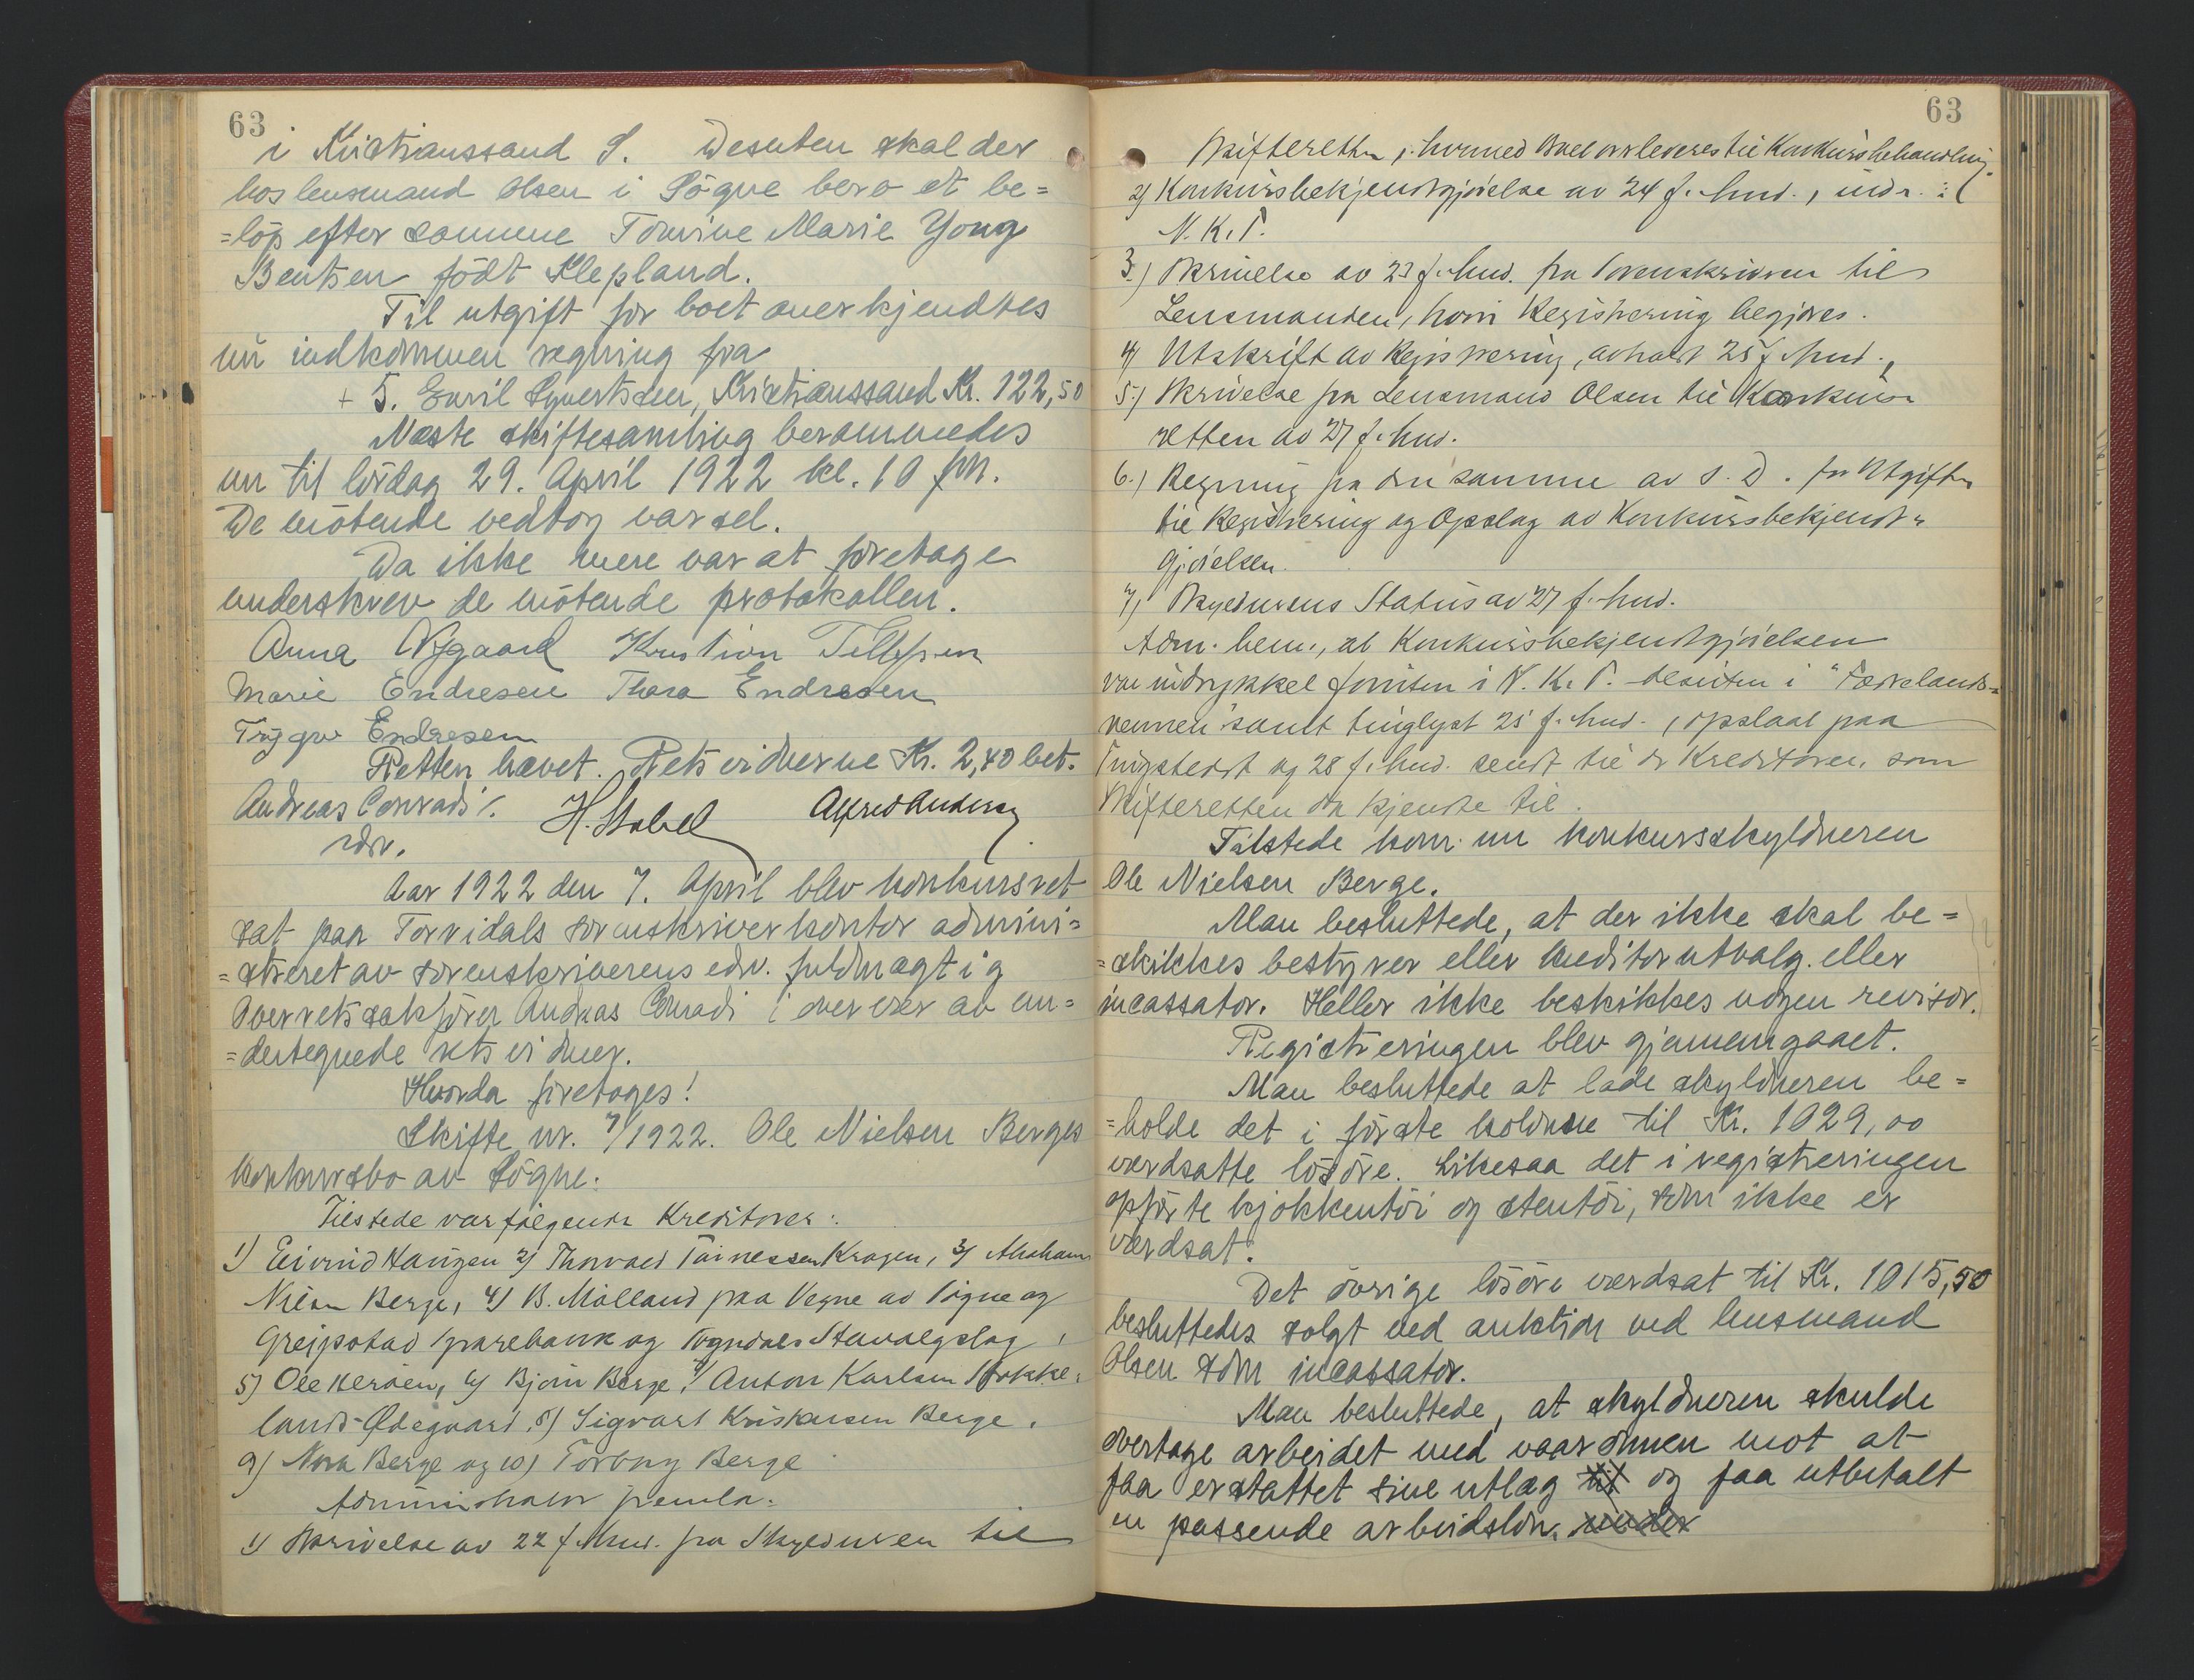 63
i Kristianssand S. Desuten skal der
hos lensmand Olsen i Søgne bero et be=
=løp efter samme Tomine Marie Yong
Bentsen født Klepland.
Til utgift for boet anerkjendtes
nu indkommen regning fra
+ 5. Emil Syvertsen, Kristianssand Kr. 122,50
Næste skiftesamling berammedes
nu til lördag 29. April 1922 kl. 10 fm.
De mötende vedtog varsel.
Da ikke mere var at foretage
underskrev de mötende protokollen.
Anna Nygaard Kristian Tellefsen
Marie Endresen Thora Endresen
Trygve Endresen
Retten hævet. Retsvidnerne Kr. 2,40 bet.
Andreas Conradi. H. Stabel Alfred Andersen
edv.
Aar 1922 den 7. April blev konkursret
sat paa Torridals sorenskriverkontor admini=
=streret av sorenskriverens edv. fuldmægtig
Overretssakförer Andreas Conradi i overvær av un=
=dertegnede retsvidner.
Hvorda foretoges!
Skifte nr. 7/1922. Ole Nielsen Berges
konkursbo av Søgne.
Tilstede var følgende Kreditorer:
1) Eivind Haugen 2) Thorvald Tønnessen Kragen, 3) Abraham
Nilsen Berge, 4) B. Mølland paa Vegne av Søgne og
Greipstad Sparebank og Søgndals Stevalgslag,
5) Ole Meraen, 6) Bjørn Berge, 7) Anton Karlsen Stokke=
lands-Ødegaard, 8) Sigvart Kristensen Berge,
9) Nora Berge og 10) Torborg Berge
Administrator fremla:
1) Skrivelse av 22 f. Mnd. fra Skyldneren til
63
Skifteretten, hvormed Boet overleveres til Konkursbehandling.
2) Konkursbekjendtgjørelse av 24 f. Mnd., indr. i
N. K. T.
3.) Skrivelse av 23 f. Mnd. fra Sorenskriveren til
Lensmanden, hvori Registrering begjæres.
4) Utskrift av Registrering, avholdt 25 f. Mnd.,
5.) Skrivelse fra Lensmand Olsen til Konkurs=
retten av 27 f. Mnd.
6.) Regning fra den samme av s. D. for Utgifter
til Registrering og Opslag av Konkursbekjendt=
gjørelsen.
7) Skyldnerens Status av 27 f. Mnd.
Adm. bem., at Konkursbekjendtgjørelsen
var indrykket foruten i N. K. T. desuten i "Fædrelands=
vennen" samt tinglyst 25 f. Mnd., opslaat paa
Tingstedet og 28 f. Mnd. sendt til de Kreditorer, som
Skifteretten da kjendte til.
Tilstede kom nu konkursskyldneren
Ole Nielsen Berge.
Man besluttede, at der ikke skal be=
=skikkes bestyrer eller kreditorutvalg eller
incassator. Heller ikke beskikkes nogen revisor.
Registreringen blev gjennemgaaet.
Man besluttede at lade skyldneren be=
=holde det i förste kolonne til Kr. 1029,00
værdsatte lösöre. Likesaa det i registreringen
opförte kjökkentöi og stentöi, som ikke er
værdsat.
Det övrige lösöre værdsat til Kr. 1015,50
besluttedes solgt ved auktion ved lensmand
Olsen som incassator.
Man besluttede, at skyldneren skulde
overtage arbeidet med vaaronnen mot at
faa erstattet sine utlæg til og faa utbetalt
en passende arbeidslön. under